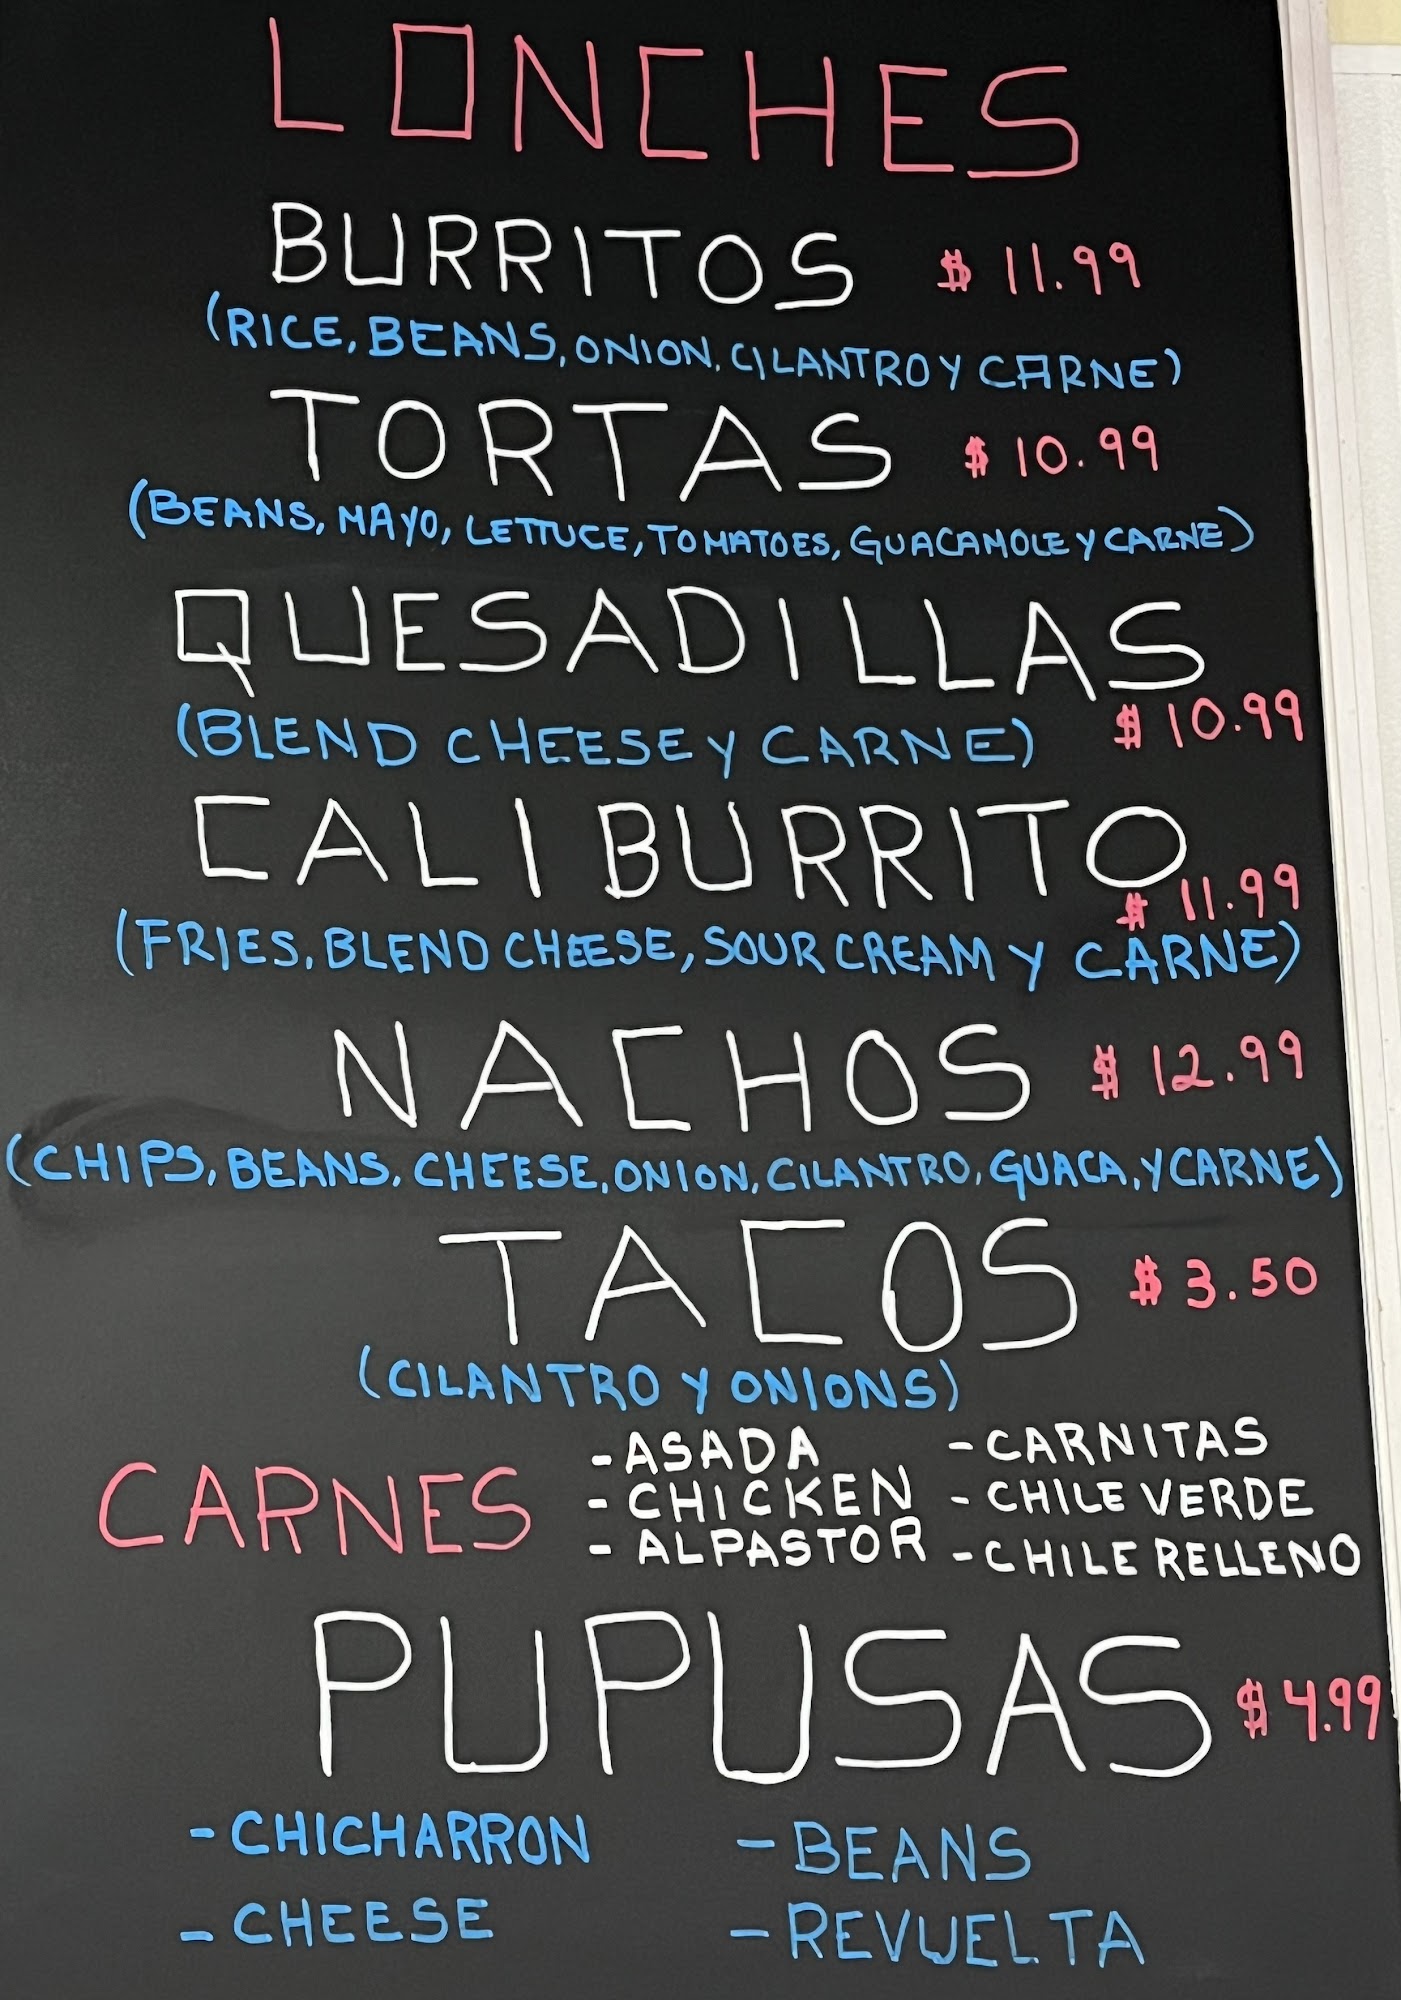 LONCHES
BURRITOS $ 11.99
(RICE, BEANS, ONION, CILANTRO Y CARNE)
TORTAS $ 10.99
(BEANS, MAYO, LETTUCE, TOMATOES, GUACAMOLE Y CARNE)
QUESADILLAS
$ 10.99
(BLEND CHEESE Y CARNE)
CALI BURRITO
$ 11.99
(FRIES, BLEND CHEESE, SOUR CREAM Y CARNE)
NACHOS $ 12.99
(CHIPS, BEANS, CHEESE, ONION, CILANTRO, GUACA, Y CARNE)
TACOS $ 3.50
(CILANTRO Y ONIONS)
CARNES
- ASADA - CARNITAS
- CHICKEN - CHILE VERDE
- ALPASTOR - CHILE RELLENO
PUPUSAS $ 4.99
- CHICHARRON - BEANS
- CHEESE - REVUELTA